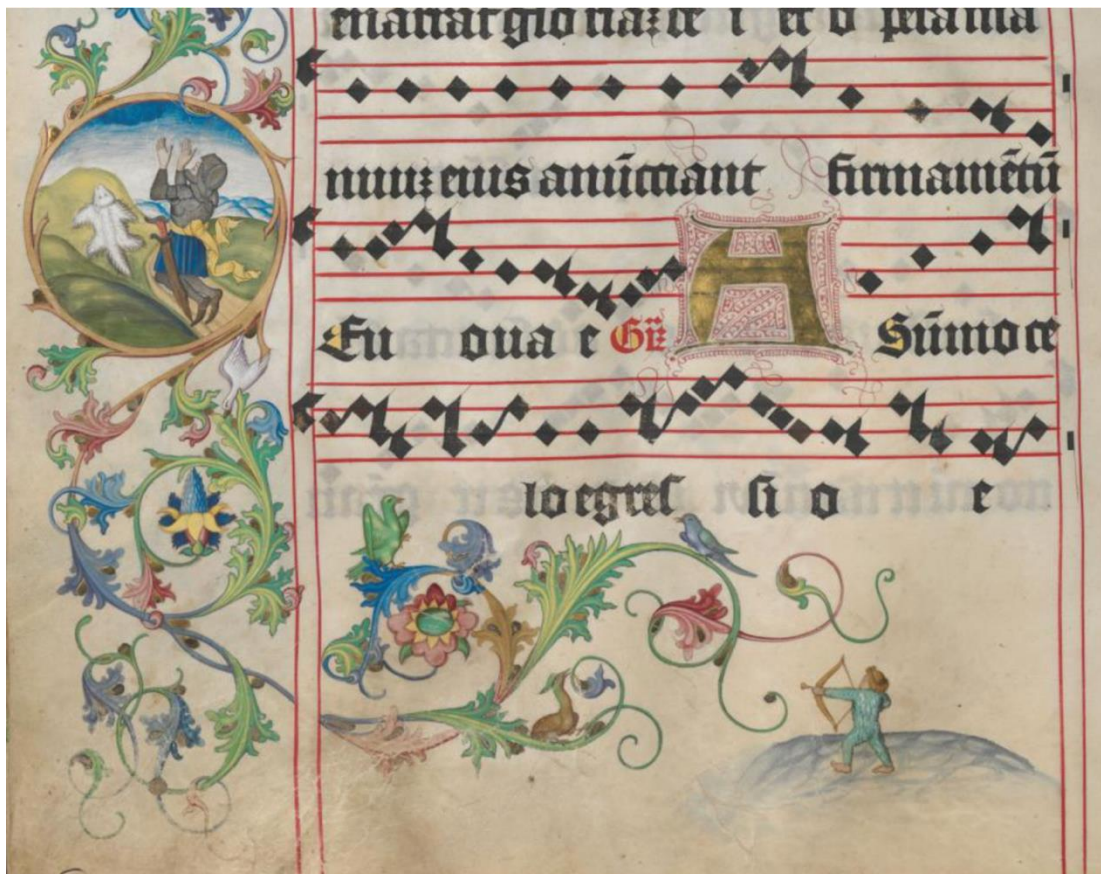 enarrat gloriaꝫ de i et o pera ma
nuuꝫ eius anūctiant firmamētū
Eu oua e Gꝛ̄ A Sūmo ce
lo egres si o e